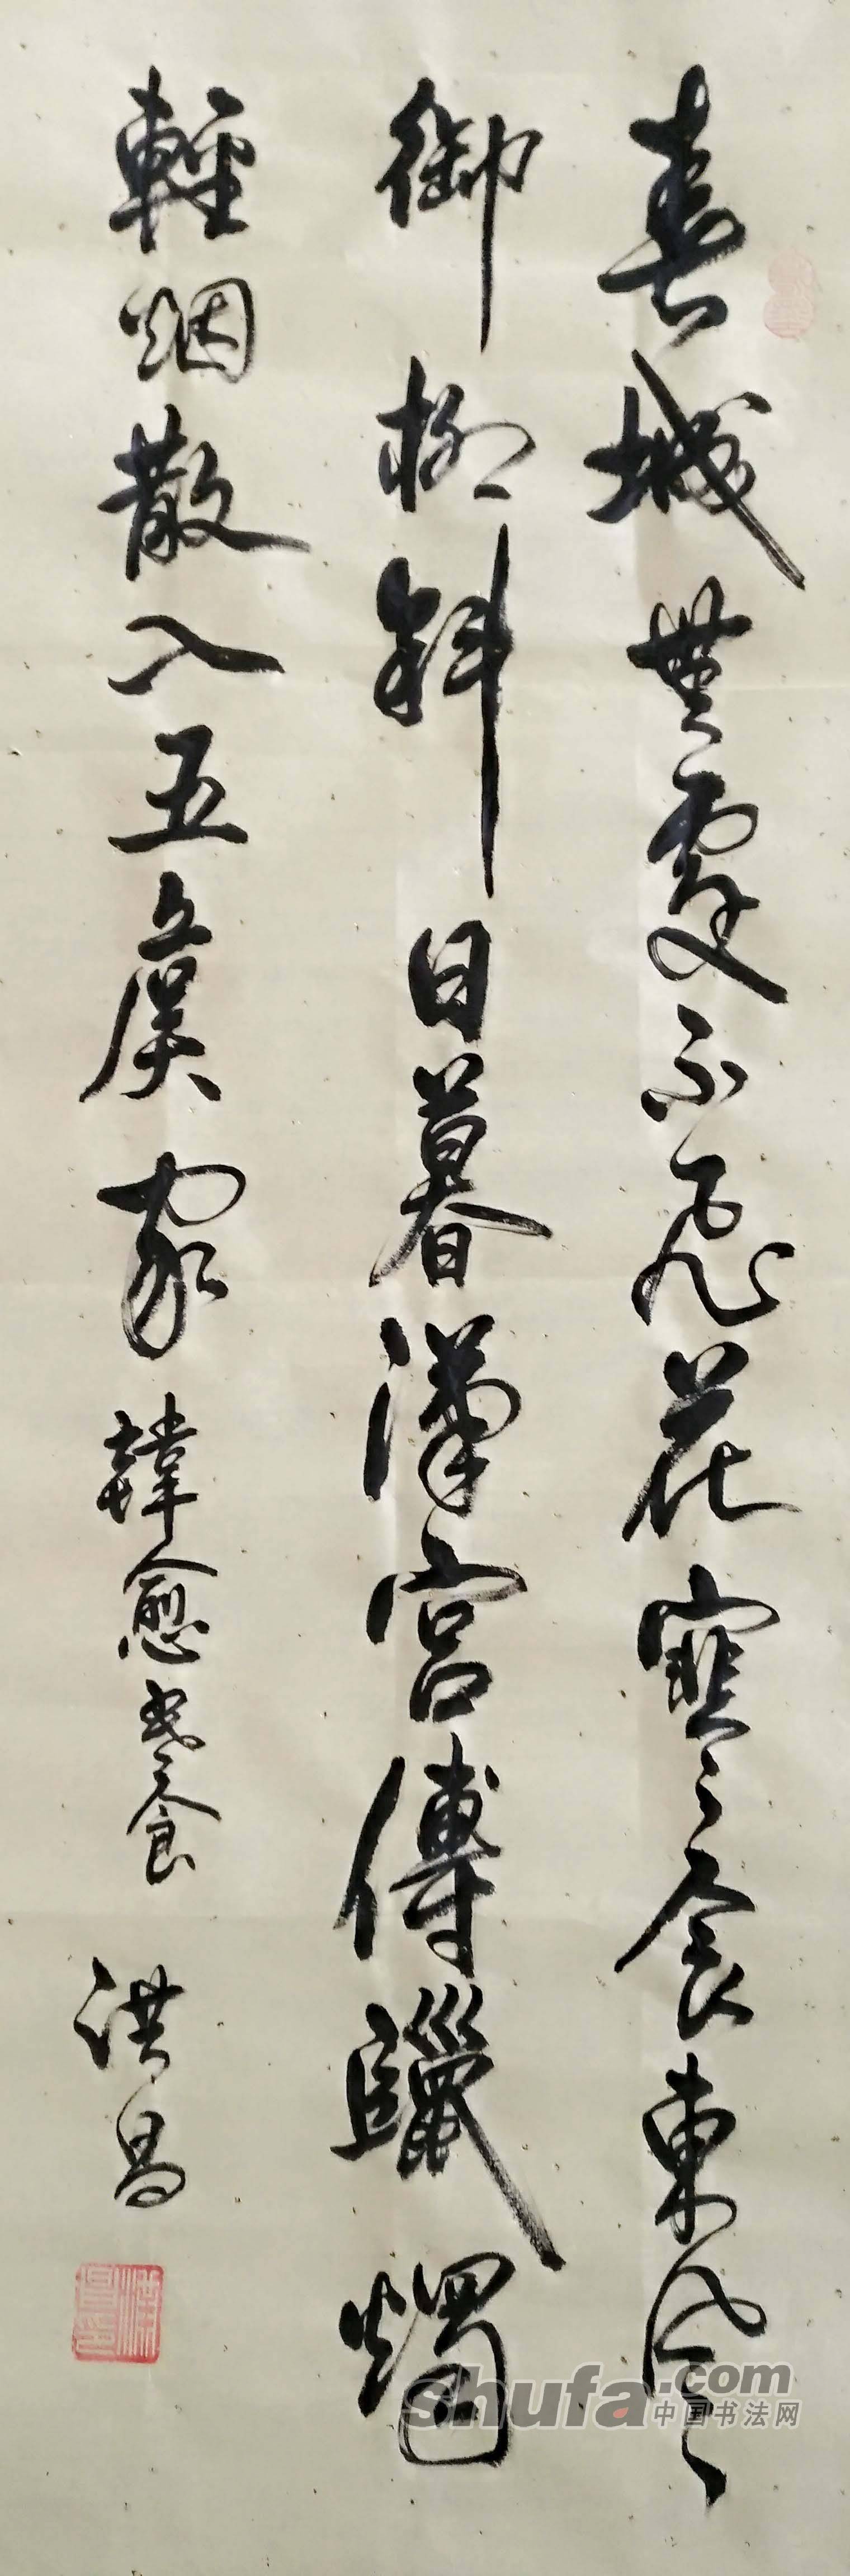 春城無處不飛花寒食東風
御柳斜日暮漢宮傳蠟燭
輕烟散入五侯家 韓愈寒食 洪昌
shufa.com
中国书法网